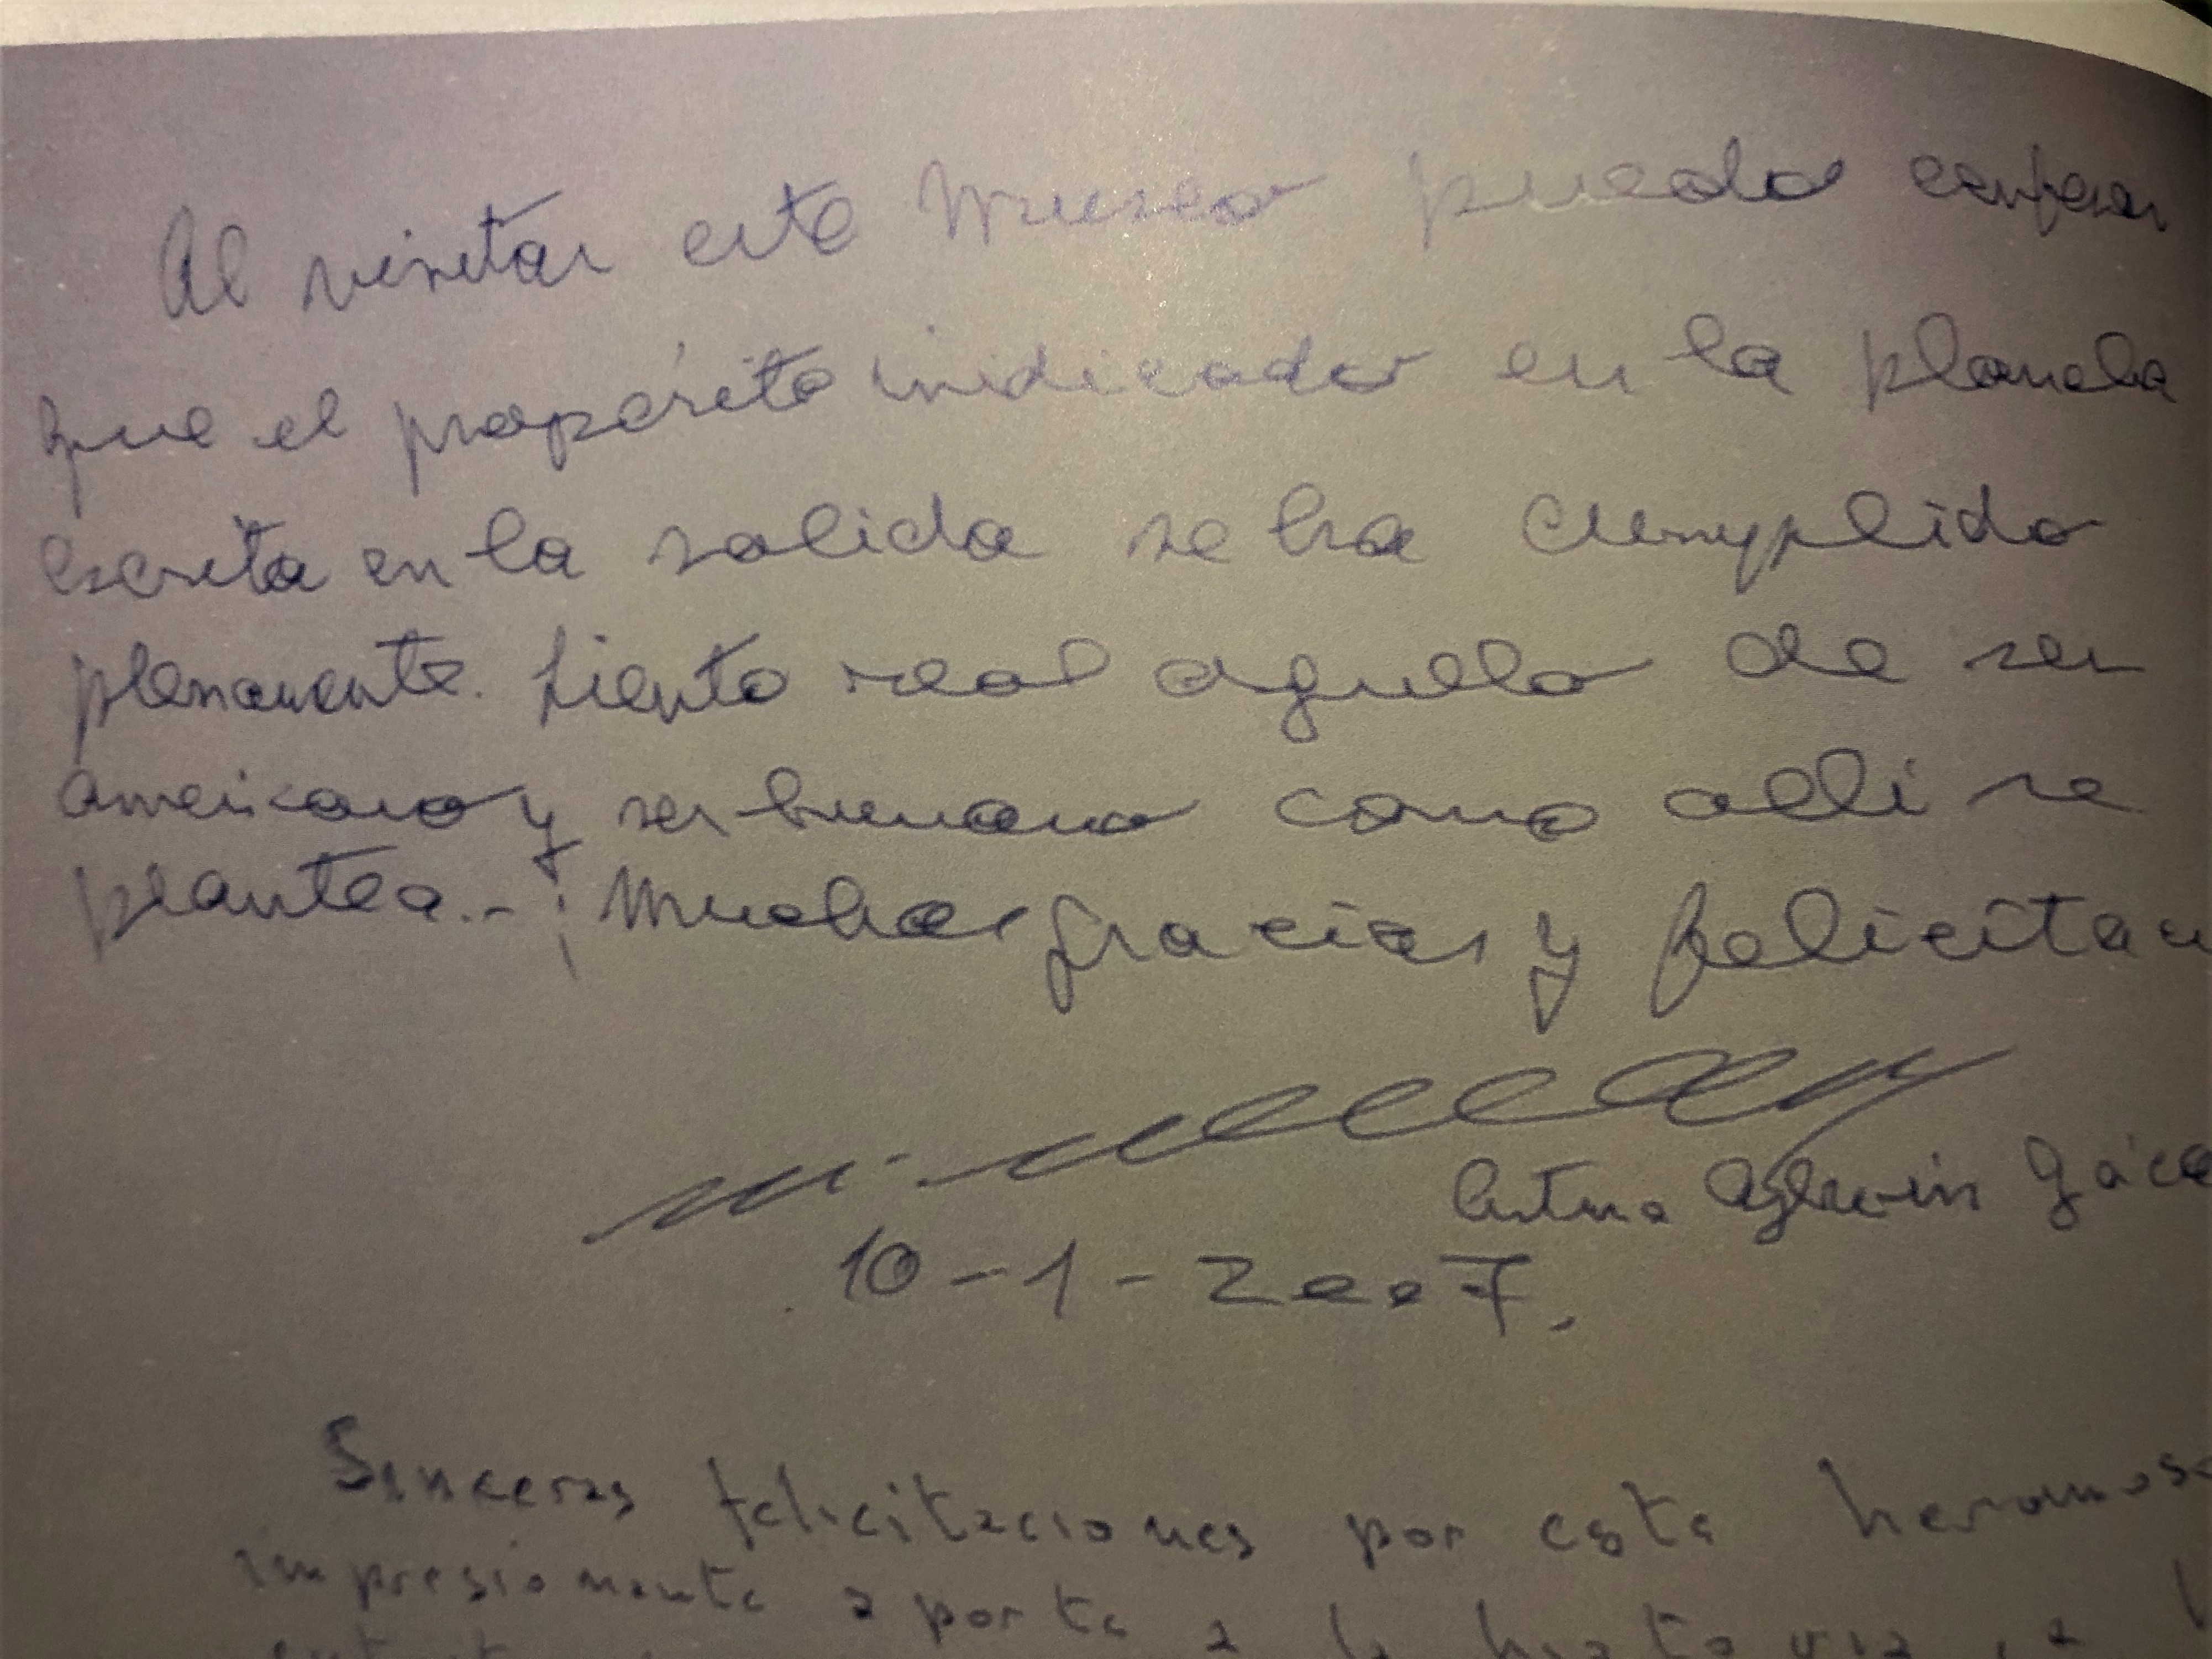 Al visitar este Museo puedo confesar
que el propósito indicado en la plancha
escrita en la salida se ha cumplido
plenamente. Siento real aquello de ser
americano y ser humano como alli se
plantea.- ¡Muchas gracias y felicitac
Arturo Aylwin
10-1-2007.
Sinceras felicitaciones por este hermoso
impresionante aporte a la historia, a